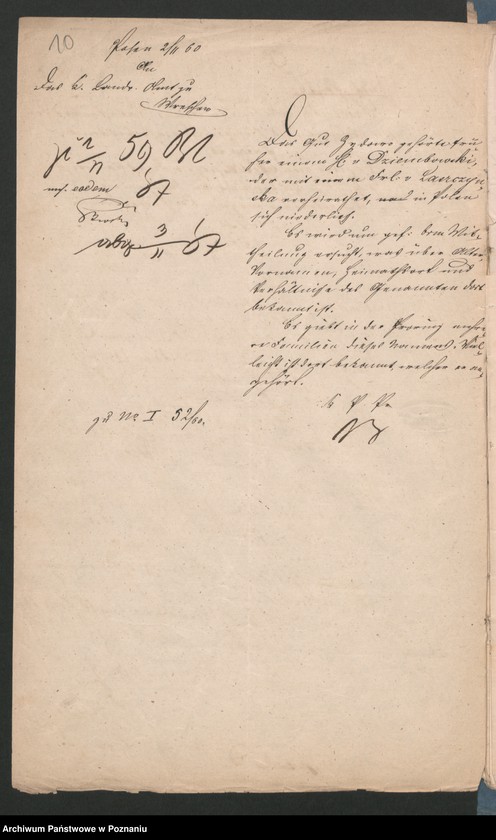 10
Posen 2/11 60
An
Das k. Landr. Amt zu
Wreschen
59
eodem
3/11
Das Gut Zydowo gehörte frü
her einem H. v Dziembowski,
der mit einem Frl. v Laszczyn
ska verheirathet, in Polen
sich niederließ.
Es wird um gef. Mit
theilung ersucht, was über Alter
Vornamen, Heimathsort und
Verhältnisse des Genannten dort
bekannt ist.
Es giebt in der Provinz mehre
re Familien dieses Namens. Viel
leicht ist dort bekannt, welcher er an
gehört.
K P Pr
zu No I 52/60.
Archiwum Państwowe w Poznaniu